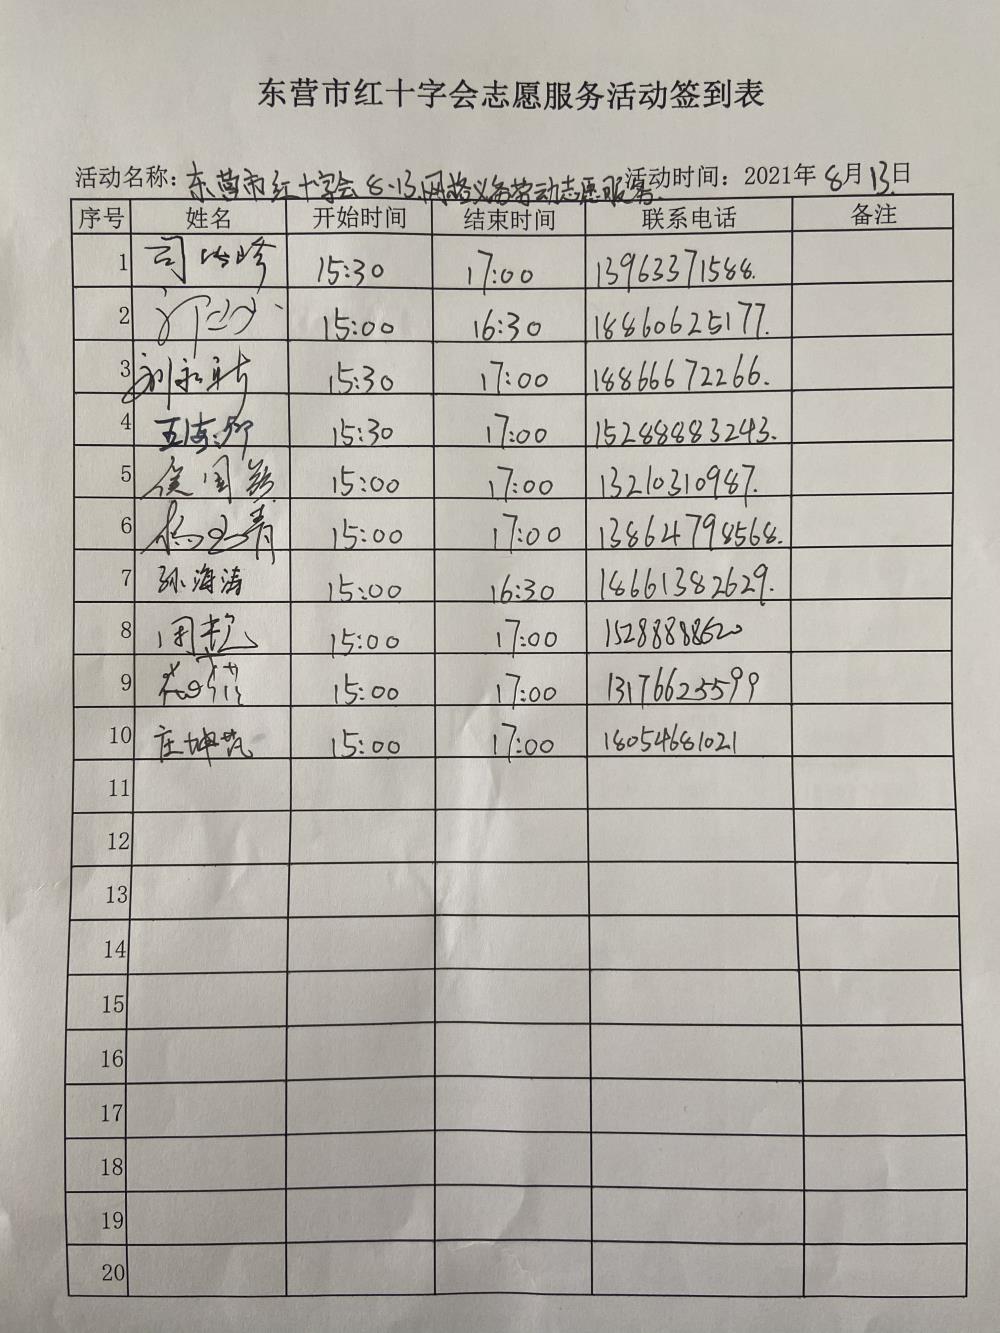 东营市红十字会志愿服务活动签到表
活动名称：东营市红十字会8·13网格义务劳动志愿服务 活动时间：2021年8月13日
序号 姓名 开始时间 结束时间 联系电话 备注
1 司 15:30 17:00 13963371588.
2 15:00 16:30 18860625177.
3 刘永新 15:30 17:00 18866672266.
4 15:30 17:00 15288883243.
5 侯国 15:00 17:00 13210310987.
6 杨 青 15:00 17:00 13864798568.
7 孙海涛 15:00 16:30 18661382629.
8 周 15:00 17:00 15288888620
9 15:00 17:00 13176625599
10 庄坤 15:00 17:00 18054681021
11
12
13
14
15
16
17
18
19
20